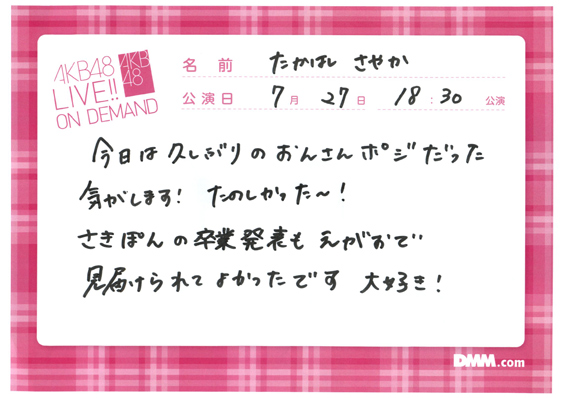 AKB48
LIVE!!
ON DEMAND
AKB
48
名前 たかはし さやか
公演日 7月 27日 18:30 公演
今日は久しぶりのおんさんポジだった
気がします! たのしかった〜!
さきぽんの卒業発表も えがおで
見届けられてよかったです 大好き!
DMM.com